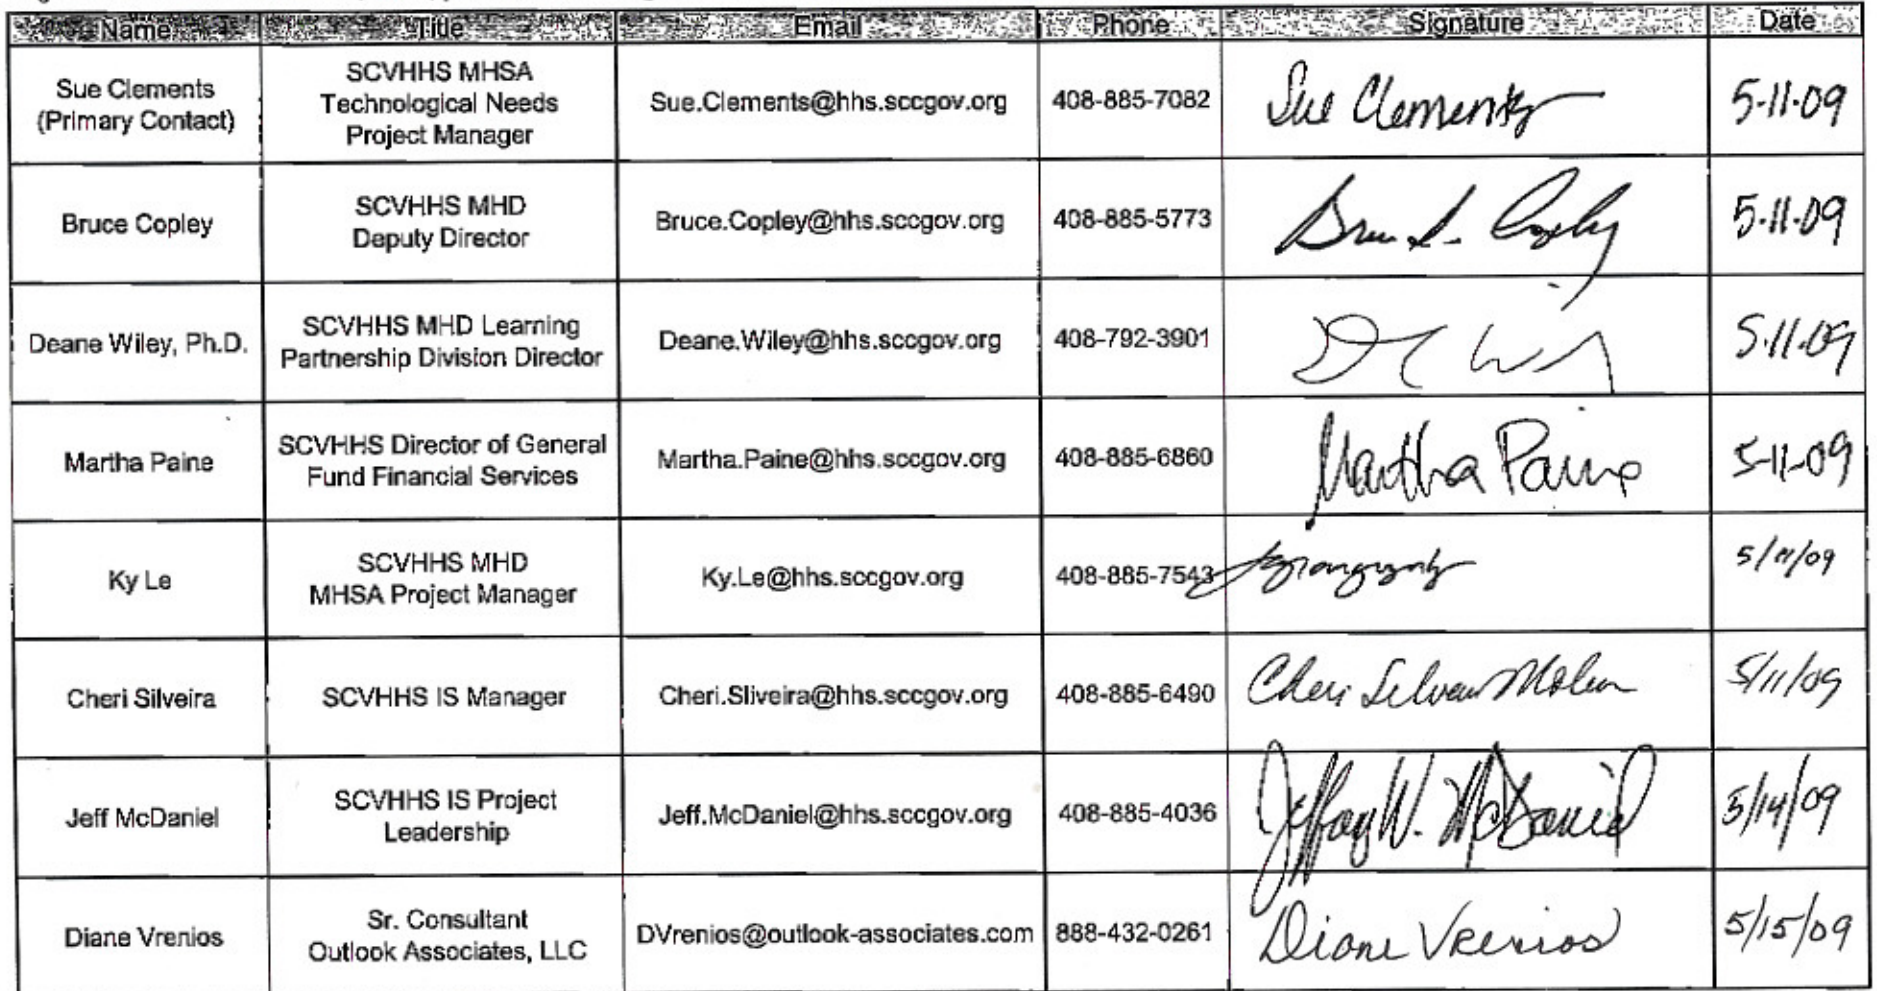 Name Title Email Phone Signature Date
Sue Clements
(Primary Contact)
SCVHHS MHSA
Technological Needs
Project Manager
Sue.Clements@hhs.sccgov.org
408-885-7082
Sue Clements
5-11-09
Bruce Copley
SCVHHS MHD
Deputy Director
Bruce.Copley@hhs.sccgov.org
408-885-5773
Copley
5-11-09
Deane Wiley, Ph.D.
SCVHHS MHD Learning
Partnership Division Director
Deane.Wiley@hhs.sccgov.org
408-792-3901
5-11-09
Martha Paine
SCVHHS Director of General
Fund Financial Services
Martha.Paine@hhs.sccgov.org
408-885-6860
Martha Paine
5-11-09
Ky Le
SCVHHS MHD
MHSA Project Manager
Ky.Le@hhs.sccgov.org
408-885-7543
5/11/09
Cheri Silveira
SCVHHS IS Manager
Cheri.Sliveira@hhs.sccgov.org
408-885-6490
Cheri
5/11/09
Jeff McDaniel
SCVHHS IS Project
Leadership
Jeff.McDaniel@hhs.sccgov.org
408-885-4036
Jeffrey W. McDaniel
5/14/09
Diane Vrenios
Sr. Consultant
Outlook Associates, LLC
DVrenios@outlook-associates.com
888-432-0261
Diane Vrenios
5/15/09